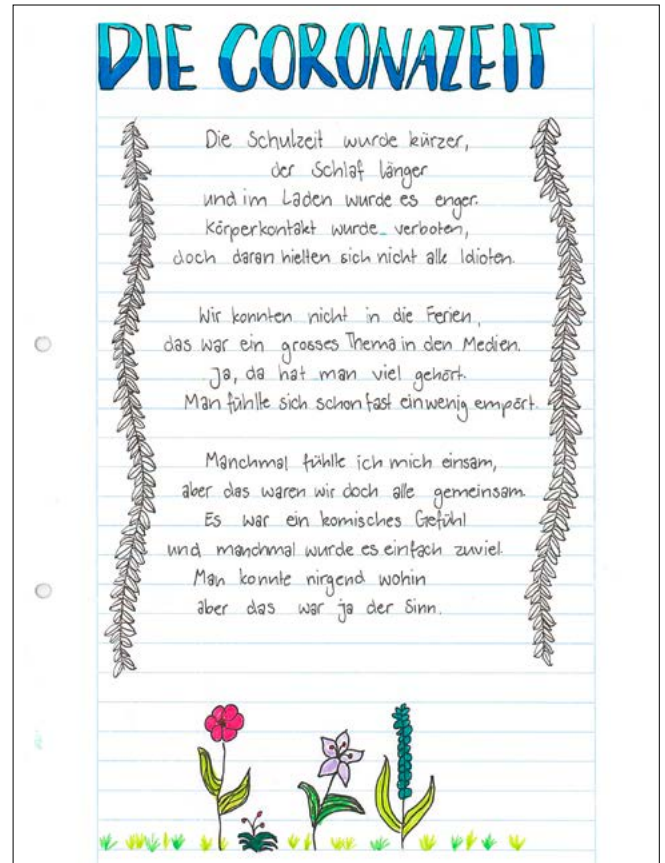 DIE CORONAZEIT
Die Schulzeit wurde kürzer,
der Schlaf länger
und im Laden wurde es enger.
Körperkontakt wurde verboten,
doch daran hielten sich nicht alle Idioten.
Wir konnten nicht in die Ferien,
das war ein grosses Thema in den Medien.
Ja, da hat man viel gehört.
Man fühlte sich schon fast ein wenig empört.
Manchmal fühlte ich mich einsam,
aber das waren wir doch alle gemeinsam.
Es war ein komisches Gefühl
und manchmal wurde es einfach zuviel.
Man konnte nirgend wohin
aber das war ja der Sinn.